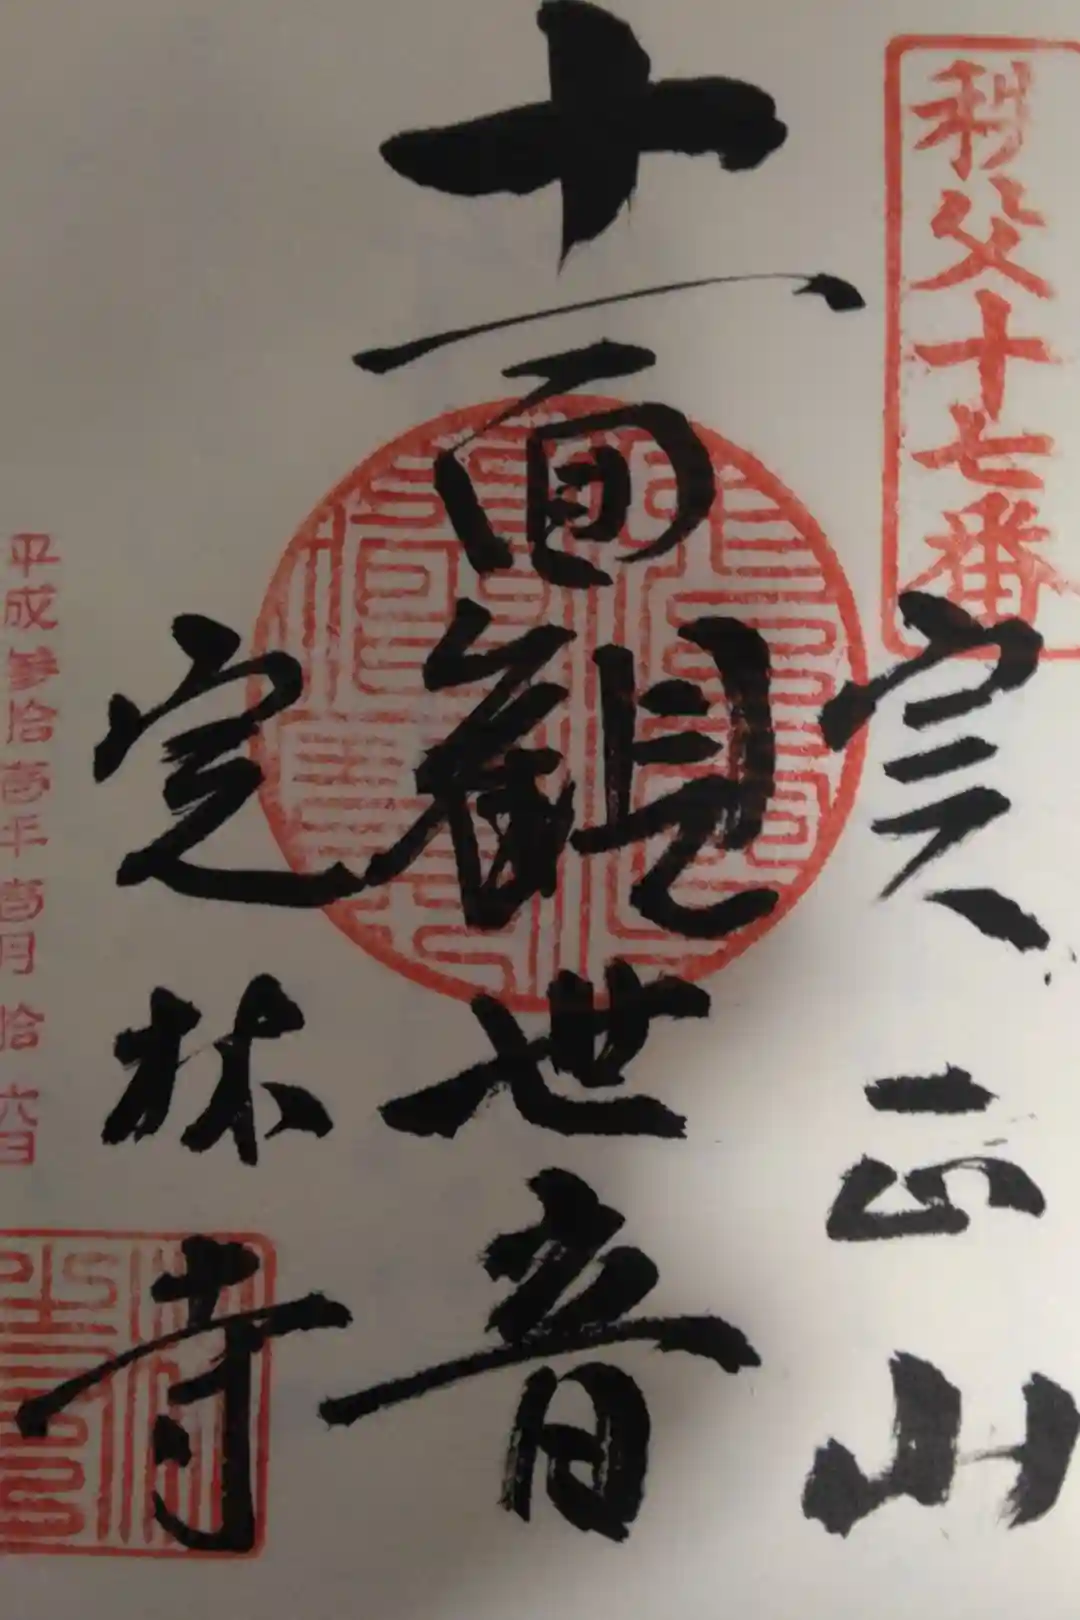 秩父十七番
実正山
十一面観世音
定林寺
平成参拾壱年壱月拾六日